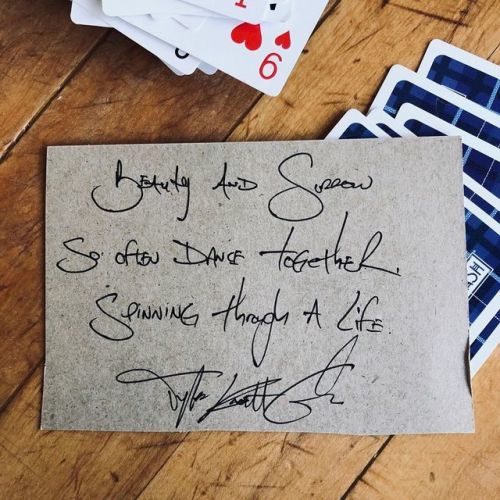 9
Beauty and Sorrow
So often Dance together.
Spinning through a life.
Tyler Knott